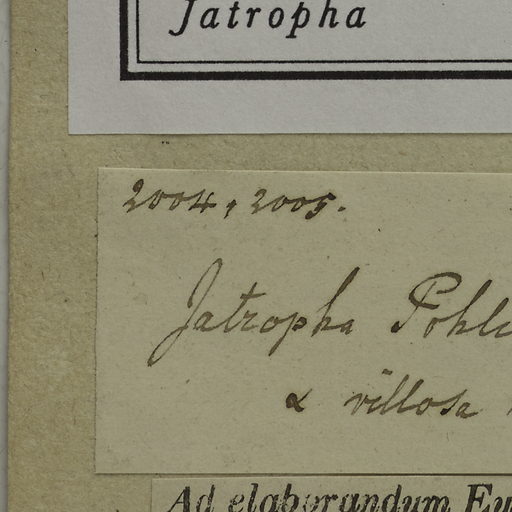 Jatropha
2004, 2005.
Jatropha Pohl
α villosa
Ad elaborandum Eu